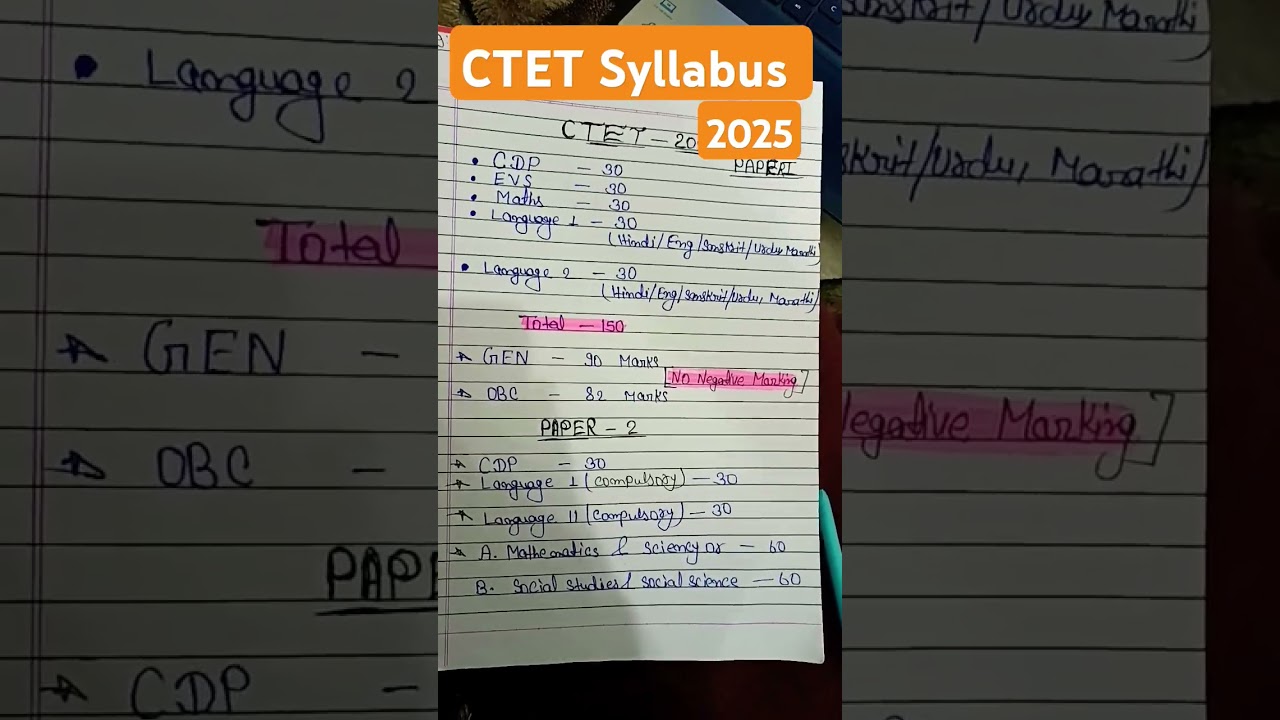 CTET Syllabus
2025
CTET - 20
PAPER I
• CDP - 30
• EVS - 30
• Maths - 30
• Language 1 - 30
(Hindi/Eng/Sanskrit/Urdu Marathi)
• Language 2 - 30
(Hindi/Eng/Sanskrit/Urdu, Marathi)
Total - 150
→ GEN - 90 Marks
[No Negative Marking]
→ OBC - 82 Marks
PAPER - 2
→ CDP - 30
→ Language 1 (compulsory) - 30
→ Language II (compulsory) - 30
→ A. Mathematics & Sciency or - 60
B. Social studies & social science - 60
• Language 2
Total
→ GEN -
→ OBC -
PAPE
→ CDP -
Sanskrit/Urdu Marathi)
skrit/Urdu, Marathi)
Negative Marking]